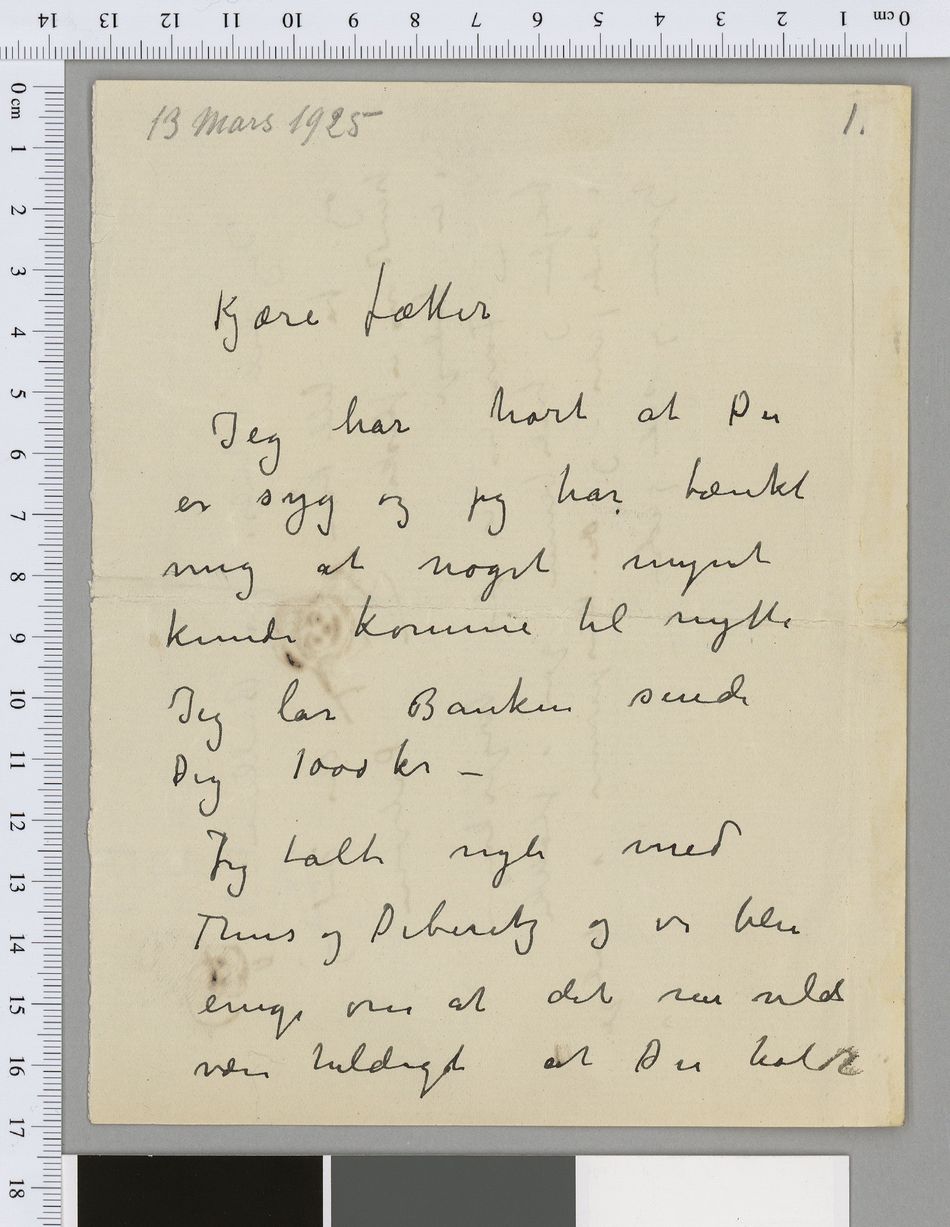 13 Mars 1925
1.
Kjære Fætter
Jeg har hørt at Du
er syg og jeg har tænkt
mig at noget mynt
kunde komme til nytte
Jeg lar Banken sende
Dig 1000 kr –
Jeg talte nylig med
Thiis og Diberitz og vi blev
enige om at det nu vilde
være heldigt at Du holdt